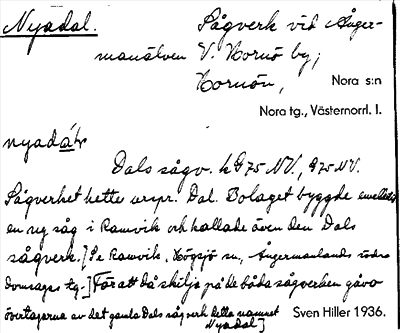 Nyadal. Sågverk vid Ånger-
manälven V. Hornö by;
Hornön, Nora s:n
Nora tg., Västernorrl. l.
nyadá
Dals sågv. k G 75 NV., G 75 NV.
Sågverket hette urspr. Dal. Bolaget byggde emellertid
en ny såg i Ramvik och kallade även den Dals
sågverk. [Se Ramvik, Högsjö sn, Ångermanlands södra
domsagas tg.] För att då skilja på de båda sågverken gåvo
övertagarna av det gamla Dals sågverk detta namnet
Nyadal] Sven Hiller 1936.